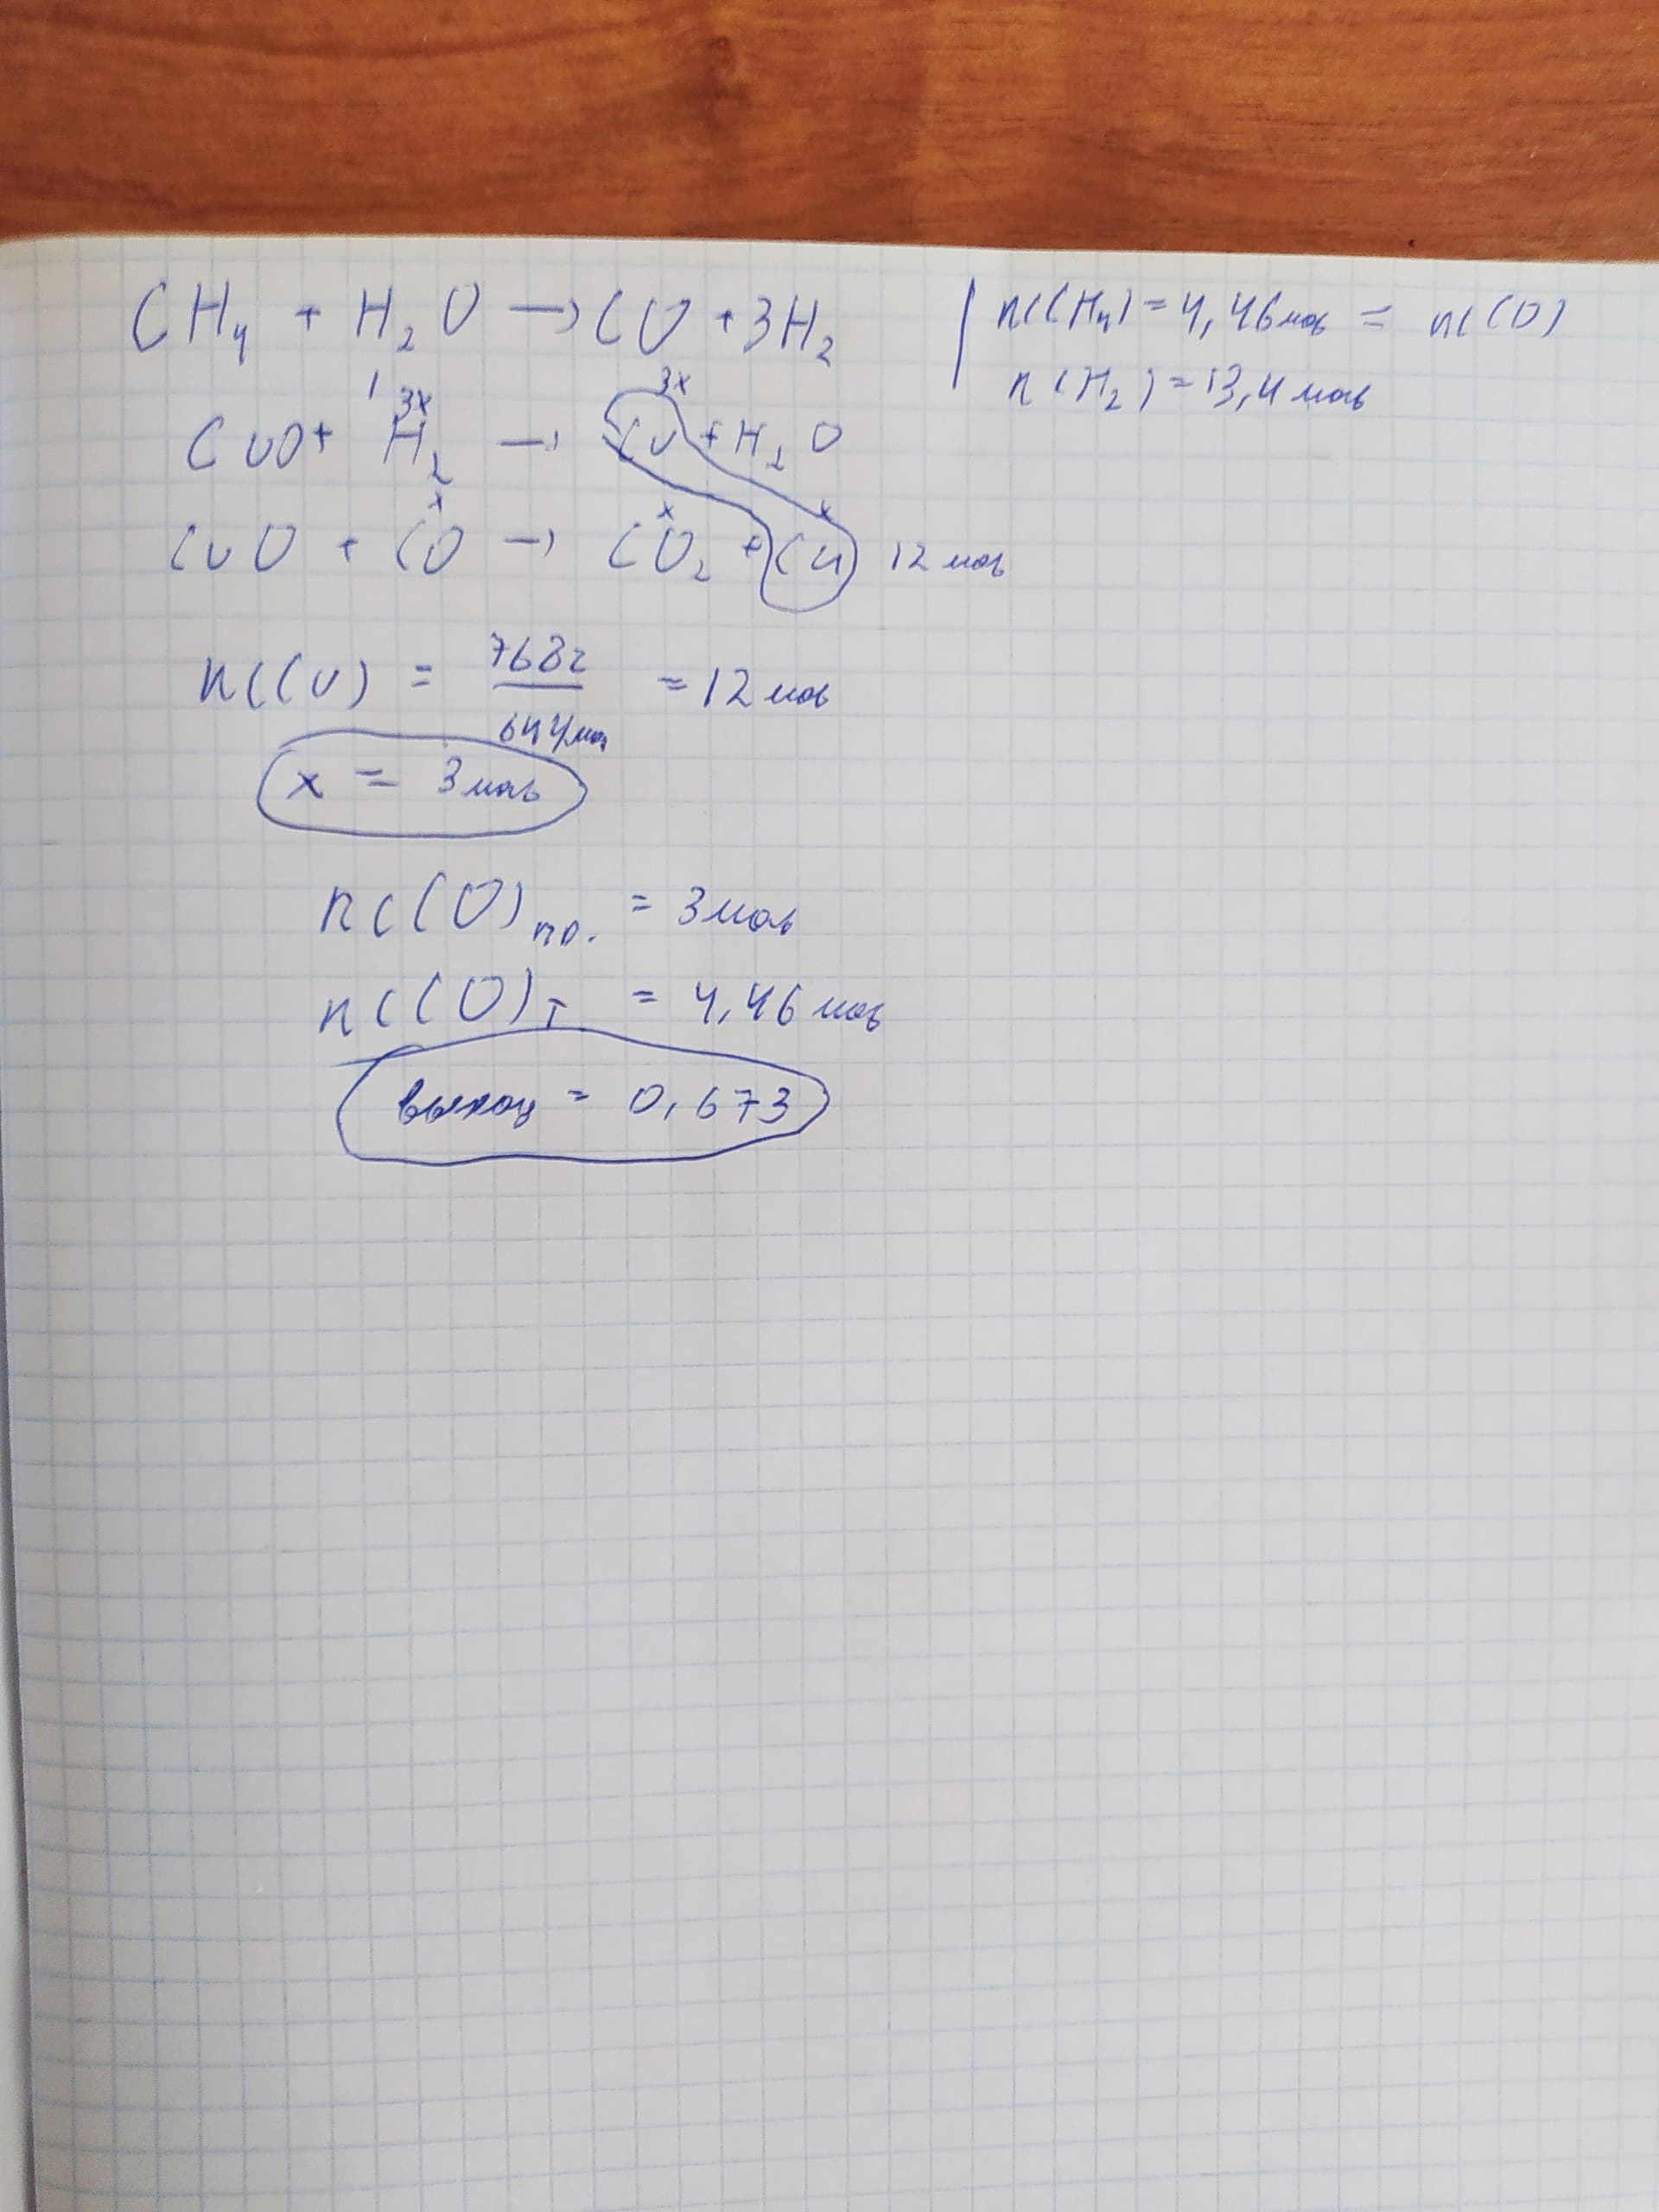 CH₄ + H₂O → CO + 3H₂
n(CH₄) = 4,46 моль = n(CO)
n(H₂) = 13,4 моль
3x 3x
CuO + H₂ → Cu + H₂O
x x x
CuO + CO → CO₂ + Cu 12 моль
n(Cu) = 768г / 64г/моль = 12 моль
x = 3 моль
n(CO)пр. = 3 моль
n(CO)т = 4,46 моль
выход = 0,673